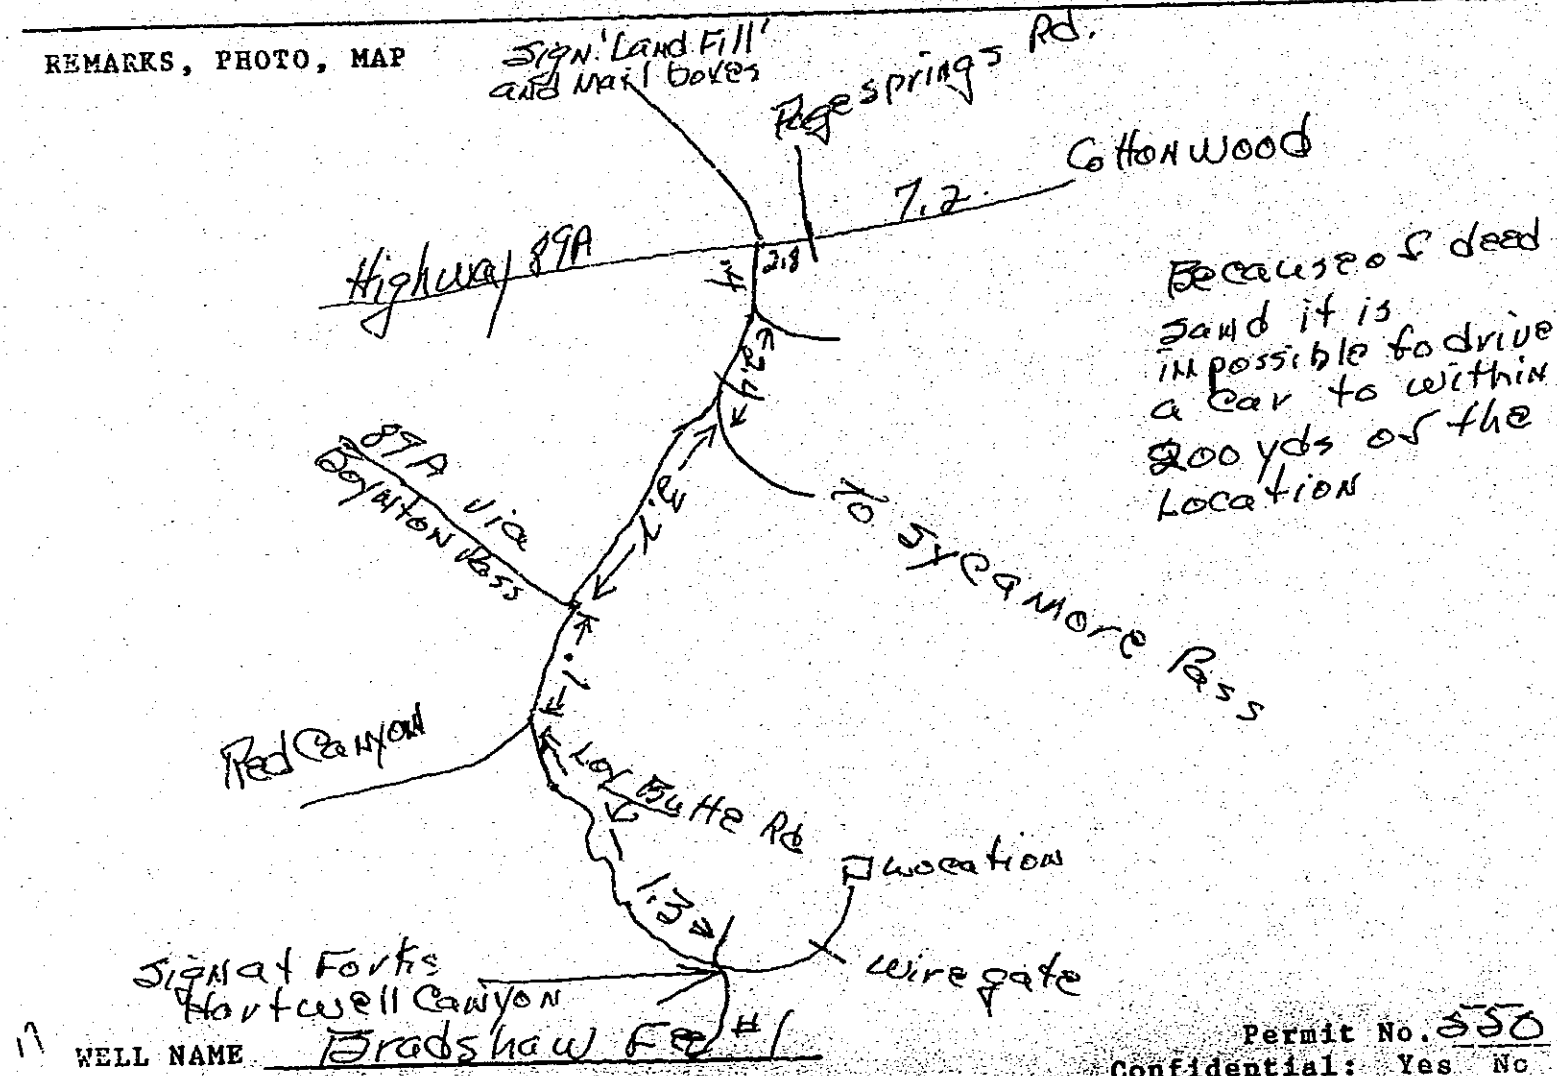 REMARKS, PHOTO, MAP
Sign 'Land Fill'
and Mail boxes
Page springs Rd.
Cottonwood
7.2
Highway 89A
2.8
.4
Because of deed
sand it is
impossible to drive
a car to within
200 yds of the
Location
2.4
89A via
Boynton Pass
To Sycamore Pass
.1
Red Canyon
Loy Butte Rd
1.3
Location
Wire gate
Sign at Forks
Hartwell Canyon
WELL NAME Bradshaw Fee #1
Permit No. 550
Confidential: Yes No